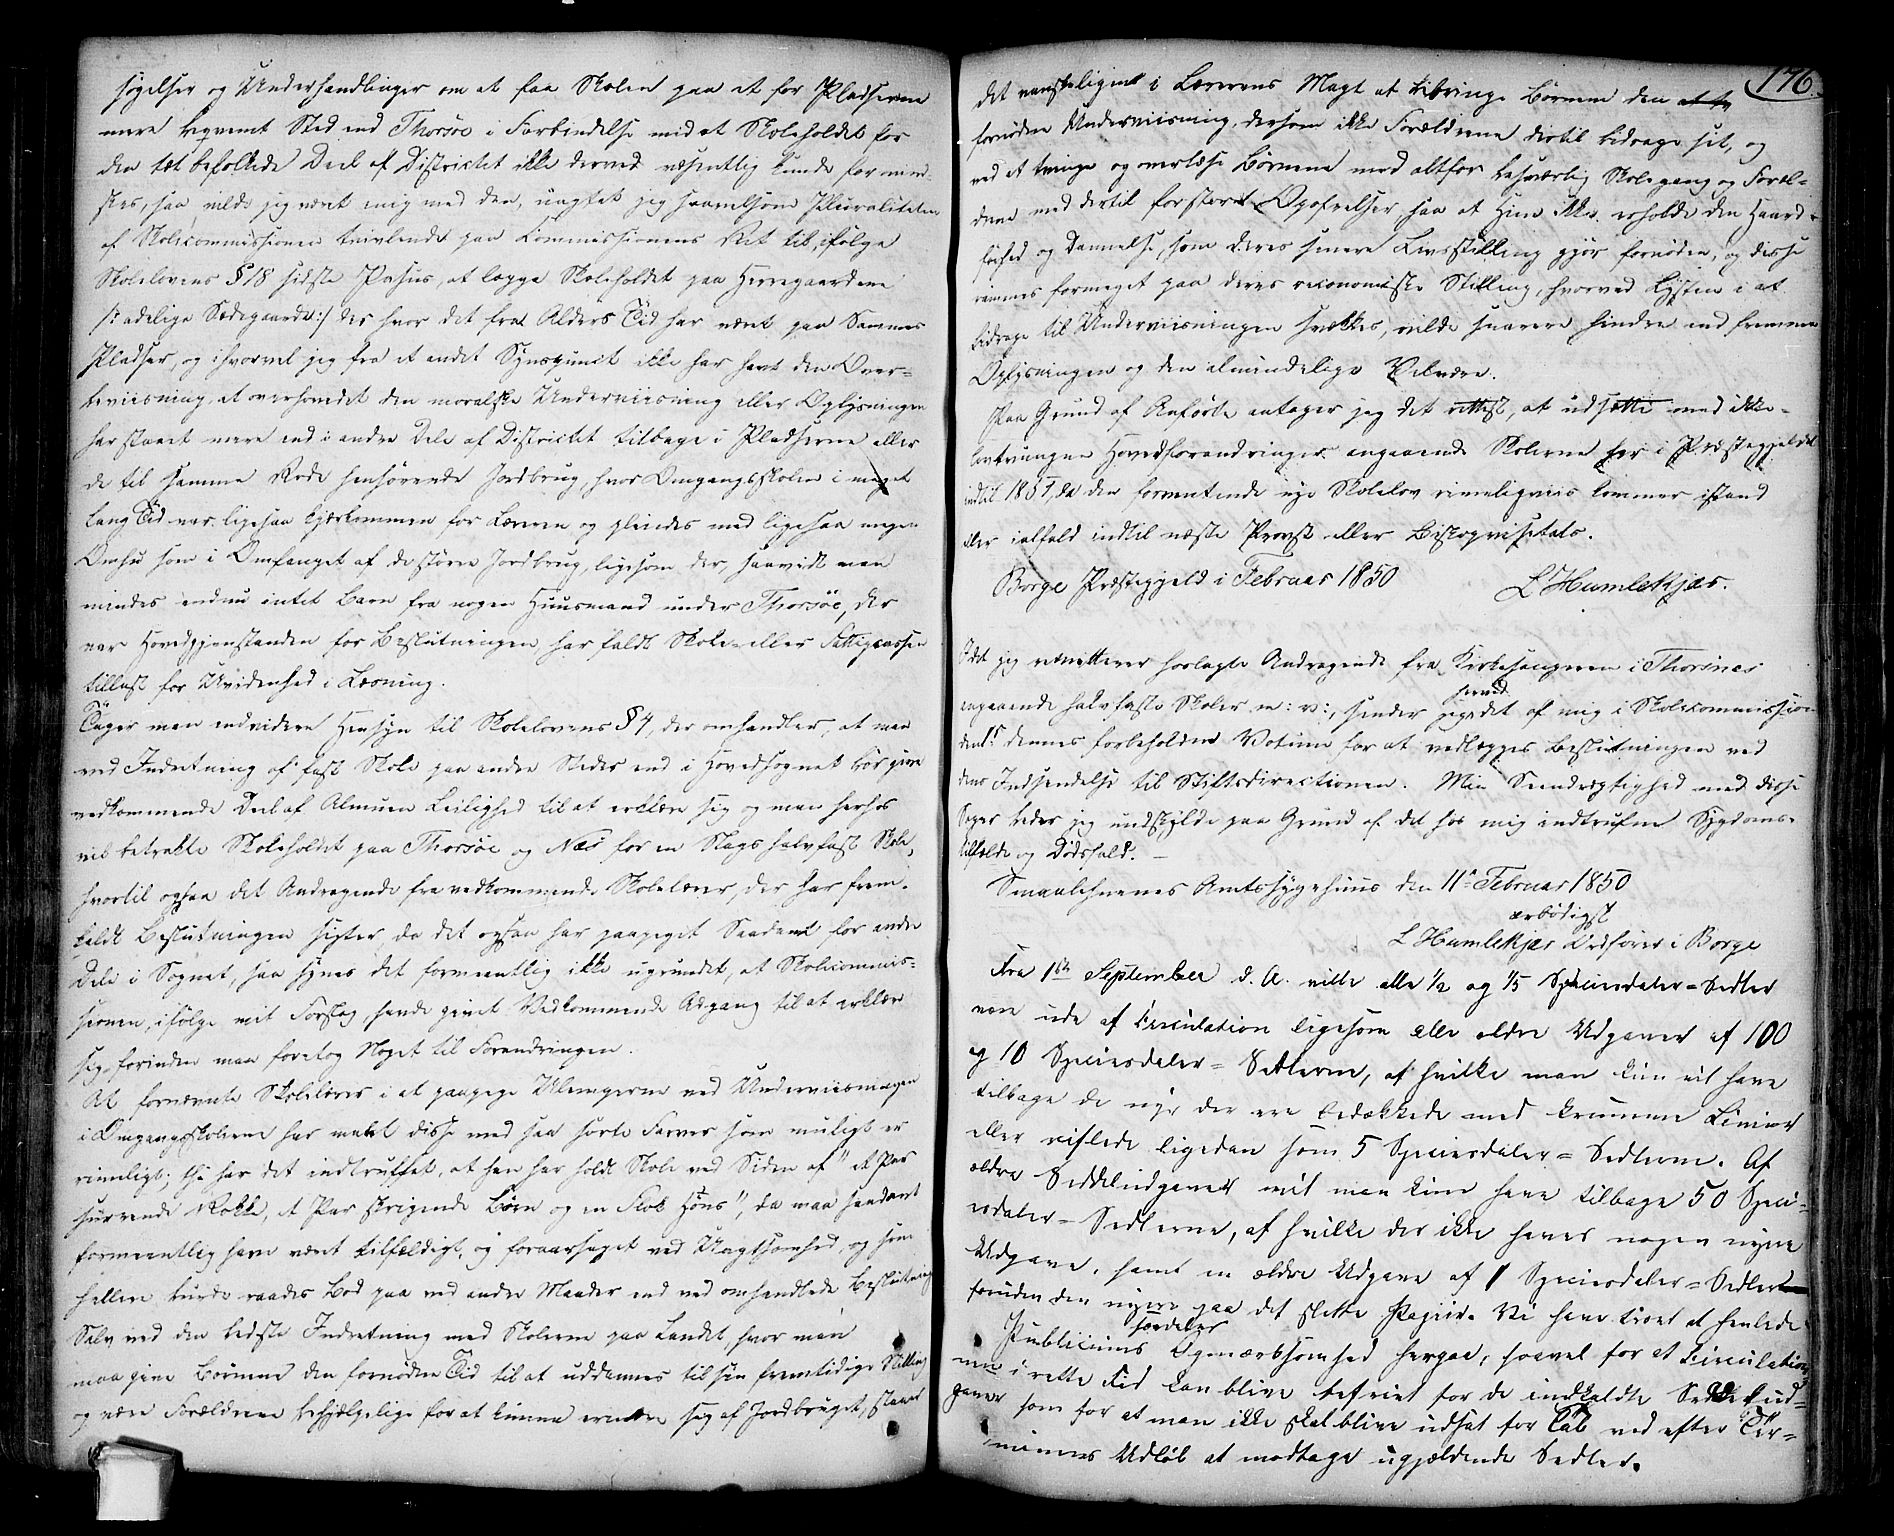 søgelser og Underhandlinger om at faa Skolen paa et for Pladserne
mere beqvemt Sted end Thorsøe i Forbindelse med at Skoleholdet for
den tæt befolkede Deel af Districtet ikke derved væsentlig kunde formind-
skes, saa vilde jeg været enig med den, uagtet jeg saavelsom Pluraliteten
af Skolecommissionen tvivlende paa Commissionens Ret til, ifølge
Skolelovens § 18 sidste Passus, at lægge Skoleholdet paa Herregaardene
/: adelige Sædegaarde :/ der hvor det fra Alders Tid har været paa Sammes
Pladser, og ihvorvel jeg fra et andet Synspunct ikke har havt den Over-
beviisning, at overhovedet den moralske Underviisning eller Oplysningen
har staaet mere end i andre Dele af Districtet tilbage i Pladserne eller
de til samme Rode henhørende Jordbrug, hvor Omgangsskolen i meget
lang Tid var ligesaa kjærkommen for Læreren og pleiedes med ligesaa megen
Omhu som i Omfanget af de større Jordbrug, ligesom der, saavidt man
mindes endnu intet Barn fra nogen Huusmand under Thorsøe, der
var Hovedgjenstanden for Beslutningen, har faldt Skole- eller Fattigcassen
tillast for Uvidenhed i Læsning.
Tager man endvidere Hensyn til Skolelovens § 4, der omhandler, at man
ved Indretning af fast Skole paa andre Steder end i Hovedsognet bør give
vedkommende Deel af Almuen Leilighed til at erklære sig og man herhos
vil betrakte Skoleholdet paa Thorsøe og Næs for en Slags halvfast Skole,
hvortil ogsaa det Andragende fra vedkommende Skolelærer, der har frem-
kaldt Beslutningen sigter, da det ogsaa har paapeget Saadant for andre
Dele i Sognet, saa synes det formeentlig ikke ugrundet, at Skolecommis-
sionen, ifølge mit Forslag, havde givet Vedkommende Adgang til at erklære
sig, forinden man foretog Noget til Forandringen.
At fornævnte Skolelærer i at paapege Ulemperne ved Underviisningen
i Omgangsskolerne har malet disse med saa sorte Farver som muligt er
rimeligt; thi har det indtruffet, at han har holdt Skole ved Siden af "et Par
surrende Rokke, et Par skrigende Børn og en Flok Høns", da maa saadant
formeentlig have været tilfældigt, og foraarsaget ved Uagtsomhed, og som
hellere burde raades Bod paa ved andre Maader end ved omhandlede Beslutning
Selv ved den bedste Indretning med Skolerne paa Landet, hvor man
maa give Børnene den fornødne Tid til at uddannes til sin fremtidige Stilling
og være Forældrene behjælpelige for at kunne ernære sig af Jordbruget, staaer
176.
det vanskeligen i Lærerens Magt at bibringe Børnene den at
fornødne Underviisning, dersom ikke Forældrene dertil bidrage sit, og
ved at tvinge og overlæsse Børnene med altfor besværlig Skolegang og Foræl-
drene med dertil for store Opofrelser, saa at Hine ikke erholde den Haard-
førhed og Dannelse, som deres senere Livsstilling gjør fornøden, og disse
rammes formeget paa deres oeconomiske Stilling, hvorved Lysten i at
bidrage til Underviisningen svækkes, vilde snarere hindre end fremme
Oplysningen og den almindelige Velvære.
Paa Grund af Anførte antager jeg det rettest, at udsætte med ikke-
lovtvungne Hovedforandringer angaaende Skolerne her i Præstegjeldet
indtil 1851, da den forventende nye Skolelov rimeligviis kommer istand
eller ialfald indtil næste Provst eller Bispevisitats.
Borge Præstegjeld i Februar 1850
L Humlekjær.
Idet jeg remitterer forlagte Andragende fra Kirkesangeren i Thorsnæs
angaaende halvfaste Skoler m: v:, sender jeg herved det af mig i Skolecommission
den 1ste dennes forbeholdne Votum for at vedlægges Beslutningen ved
dens Indsendelse til Stiftsdirectionen. Min Seendrægtighed med disse
Sager beder jeg undskyldt paa Grund af det hos mig indtrufne Sygdoms-
tilfælde og Dødsfald. —
Smaalehnenes Amtssygehuus den 11te Februar 1850
ærbødigst
L Humlekjær Ordfører i Borge
Fra 1ste September d. A. ville alle ½ og 1/5 Speciesdaler-Sedler
være ude af Circulation ligesom alle ældre Udgaver af 100
og 10 Speciesdaler-Sedlerne, af hvilke man kun vil have
tilbage de nye der ere bedækkede med krumme Linier
eller riflede ligedan som 5 Speciesdaler-Sedlerne. Af
ældre Seddeludgaver vil man kun have tilbage 50 Speci-
esdaler-Sedlerne, af hvilke der ikke haves nogen nyere
Udgave, samt en ældre Udgave af 1 Speciesdaler-Sedler
foruden den nyere paa det slette Papiir. Vi have troet at henlede
Publicums særdeles Opmærksomhed herpaa, saavel for at Circulatio-
nen i rette Tid kan blive befriet for de indkaldte Seddelud-
gaver som for at man ikke skal blive udsat for Tab ved efter Ter-
minens Udløb at modtage ugjældende Sedler.